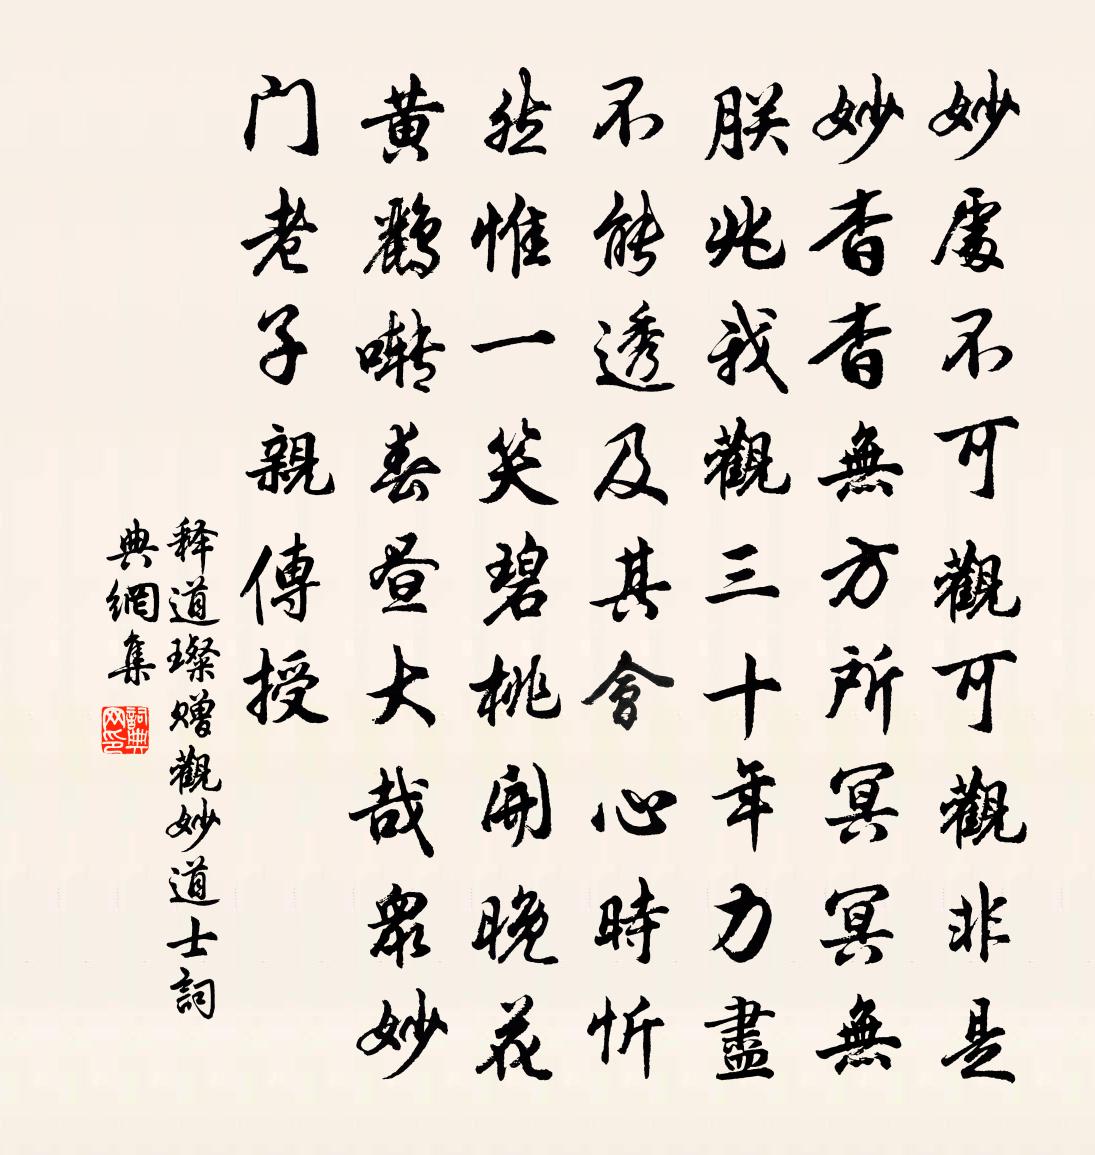 妙處不可觀可觀非是
妙杳杳無方所冥冥無
朕兆我觀三十年力盡
不能透及其會心時忻
然惟一笑碧桃開晚花
黄鸝囀春晝大哉眾妙
门老子親傳授
释道璨赠觀妙道士詞
典網集
詞典网印